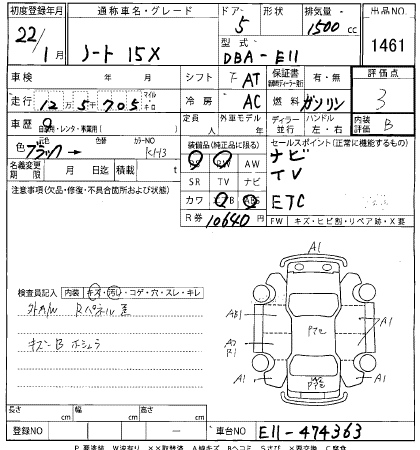 初度登録年月 通称車名・グレード ドア 形状 排気量 出品No
22/1月 ノート 15X 5 1500cc 1461
型式 DBA-E11
車検 年 月 シフト FAT 保証書 有・無 評価点
走行 12万5千705 マイル キロ 冷房 AC 燃料 ガソリン 3
車歴 自家用・レンタ・事業用( ) 定員 人 外車モデル 年 ディーラー 並行 ハンドル 左・右 内装評価 B
色 ブラック 元色 → 色替 カラーNo KH3
装備品(純正品に限る) セールスポイント(正常に機能するもの)
PS PW AW ナビ
名義変更期限 月 日迄 積載 t SR TV ナビ TV
注意事項(欠品・修復・不具合箇所および状態) カワ AB ABS ETC
R券 10640円 FW キズ・ヒビ割・リペア跡・X要
A1
検査員記入 内装 キズ・汚れ・コゲ・穴・スレ・キレ
AB1 P72 A1
キズB
A1 A1
長さ cm 幅 cm 高さ cm
登録NO — 車台NO E11-474363
P.要塗装 W波有り ××取替済 A線キズ Bヘコミ Sさび ×要交換 C腐食